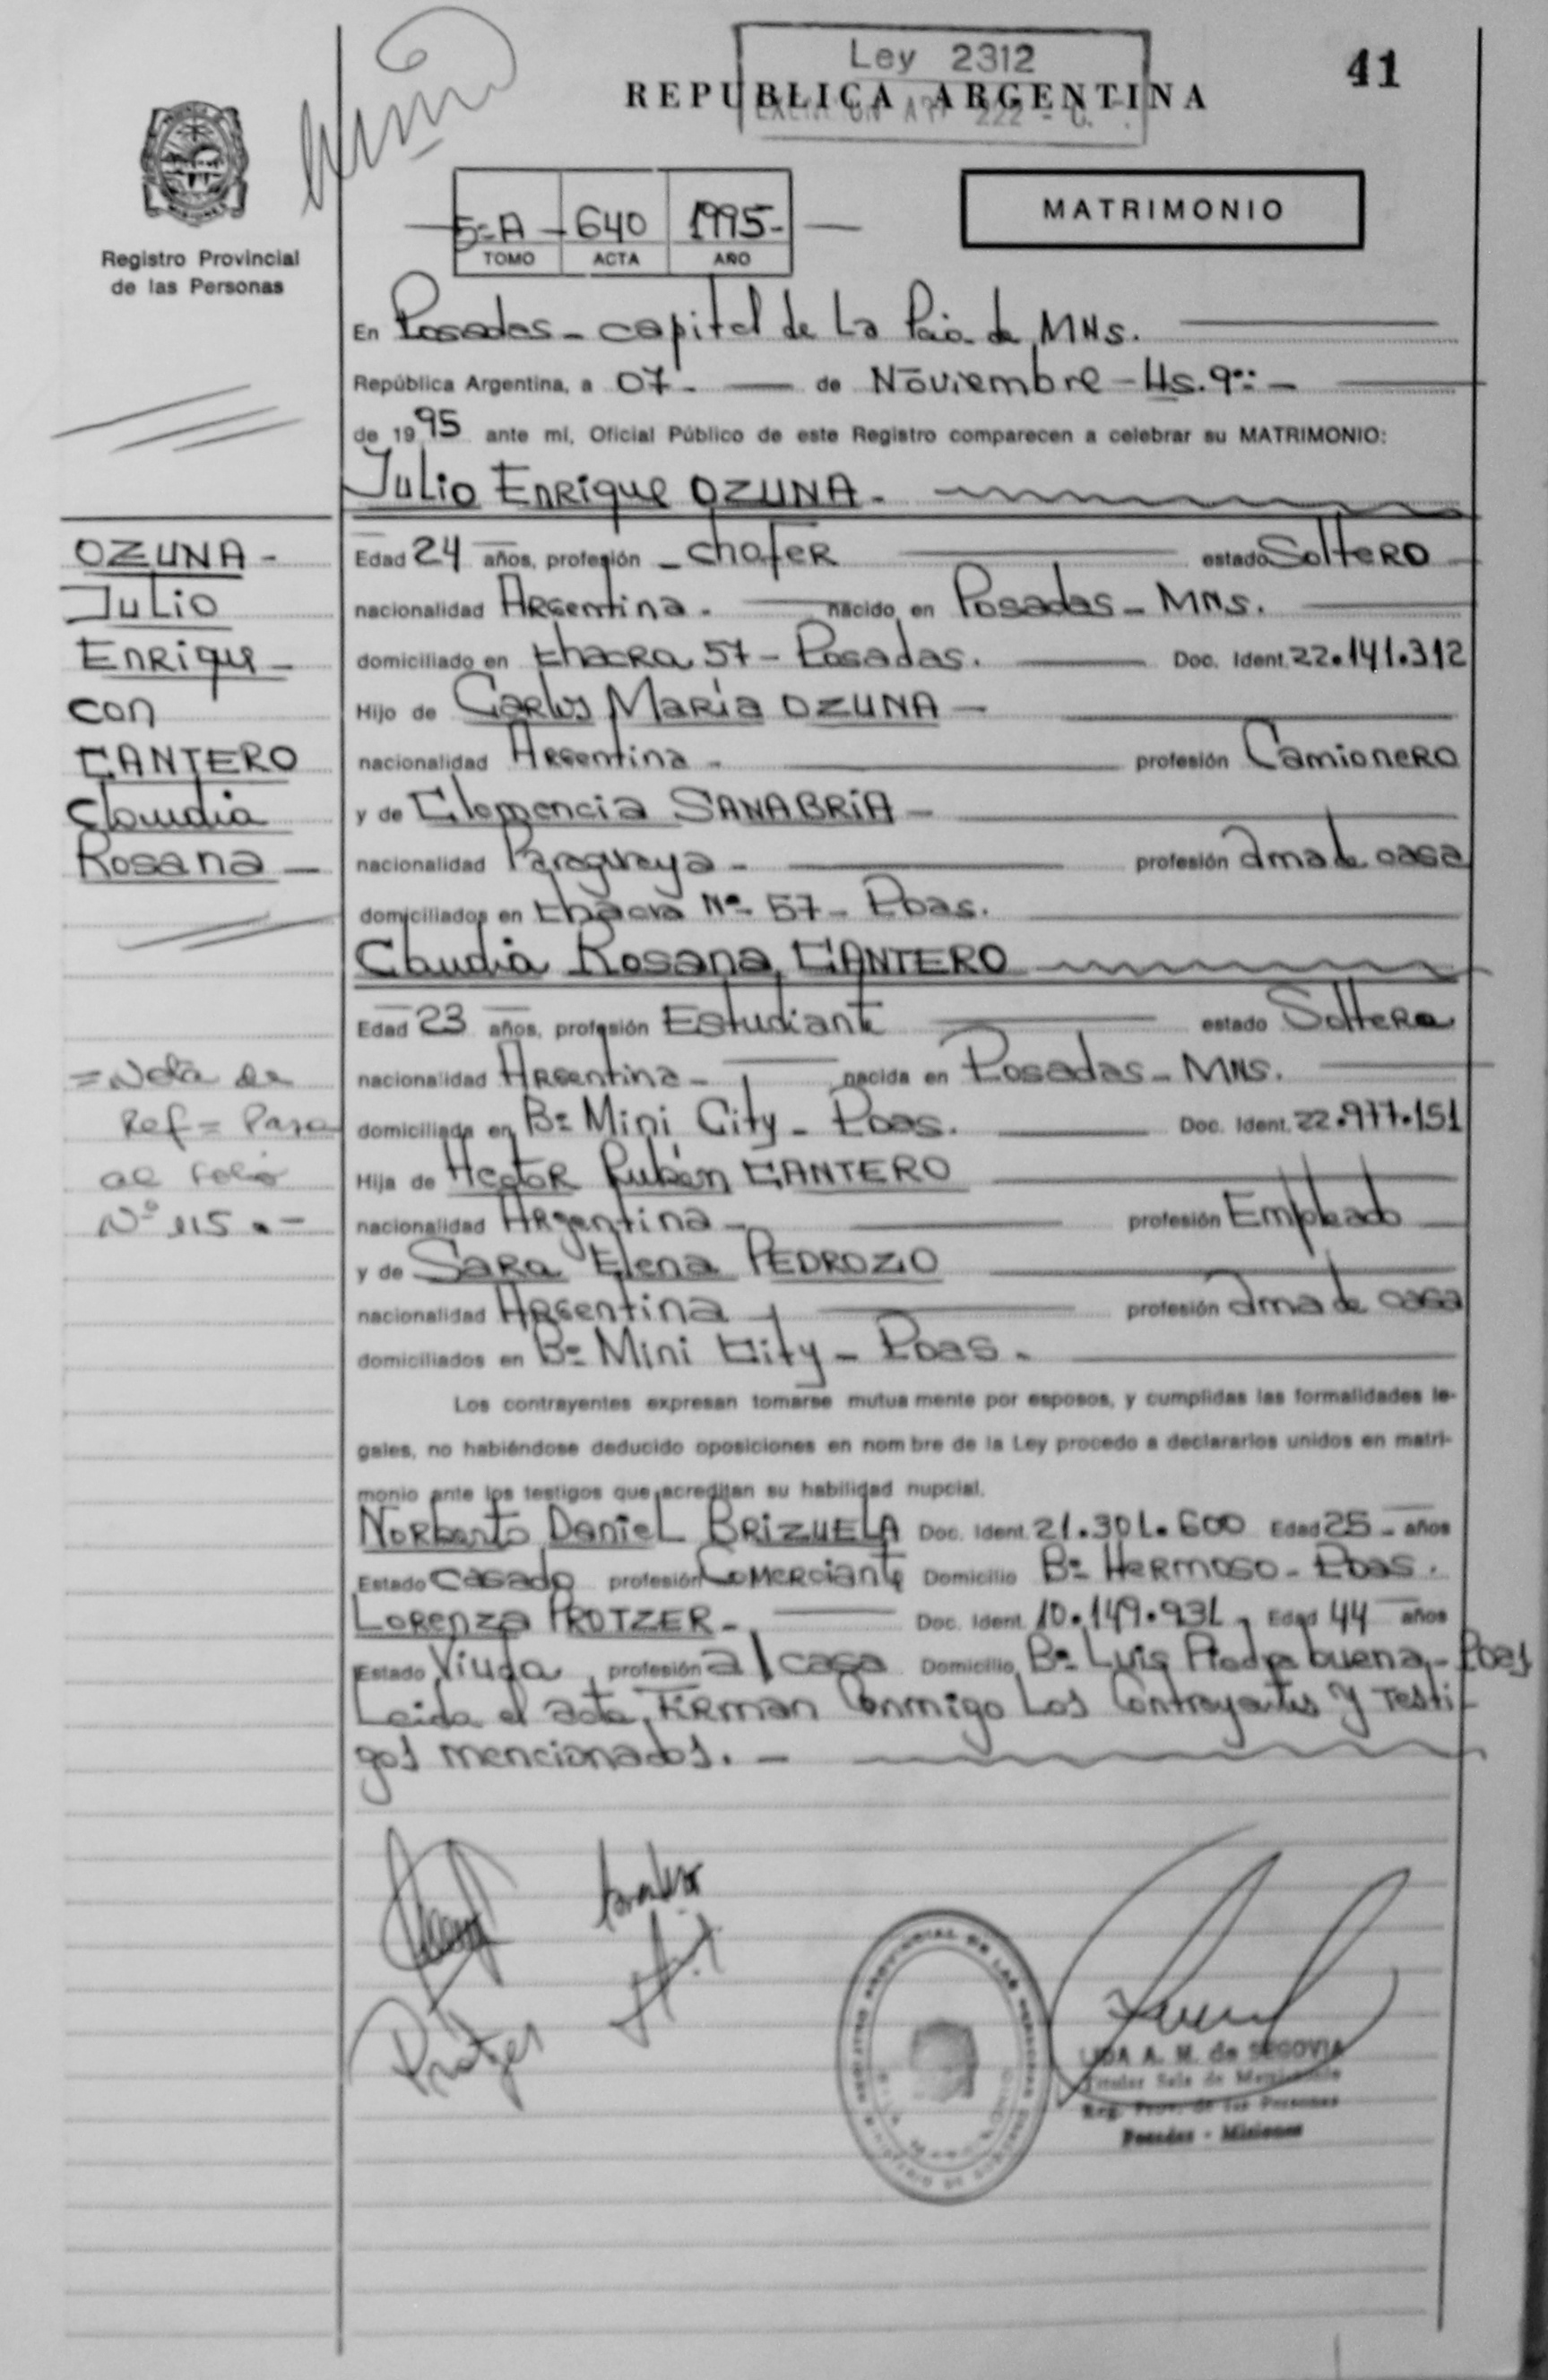 Ley 2312
REPUBLICA ARGENTINA
41
Registro Provincial
de las Personas
5-A- 640 1995-
TOMO ACTA AÑO
MATRIMONIO
En Posadas - capital de La Pcia. de MNs.
República Argentina, a 07- de Noviembre - Hs. 9
de 1995 ante mí, Oficial Público de este Registro comparecen a celebrar su MATRIMONIO:
Julio Enrique OZUNA-
Edad 24 años, profesión - chofer estado Soltero
nacionalidad Argentina- nacido en Posadas - MNs.
domiciliado en Chacra 57 - Posadas. Doc. Ident. 22.141.312
Hijo de Carlos María OZUNA -
nacionalidad Argentina - profesión Camionero
y de Clemencia SANABRIA -
nacionalidad Paraguaya - profesión ama de casa
domiciliados en Chacra Nº 57 - Pdas.
Claudia Rosana CANTERO
Edad 23 años, profesión Estudiante estado Soltera
nacionalidad Argentina - nacida en Posadas - MNs.
domiciliada en Bº Mini City - Pdas. Doc. Ident. 22.977.151
Hija de Hector Rubén CANTERO
nacionalidad Argentina - profesión Empleado
y de Sara Elena PEDROZO
nacionalidad Argentina profesión ama de casa
domiciliados en Bº Mini City - Pdas.
Los contrayentes expresan tomarse mutua mente por esposos, y cumplidas las formalidades le-
gales, no habiéndose deducido oposiciones en nom bre de la Ley procedo a declararlos unidos en matri-
monio ante los testigos que acreditan su habilidad nupcial.
Norberto Daniel BRIZUELA Doc. Ident. 21.301.600 Edad 25 - años
Estado casado profesión Comerciante Domicilio Bº Hermoso - Pdas.
Lorenza PROTZER - Doc. Ident. 10.149.931 Edad 44 años
Estado Viuda profesión a/casa Domicilio Bº Luis Piedra buena - Pdas
Leida el acta, Firman Conmigo Los Contrayentes y Testi-
gos mencionados. -
OZUNA -
Julio
Enrique -
con
CANTERO
Claudia
Rosana -
= Nota de
Ref = Pasa
al folio
Nº 115 . -
Protzer
LIDA A. M. de SEGOVIA
Titular Sala de Matrimonio
Reg. Prov. de las Personas
Posadas - Misiones